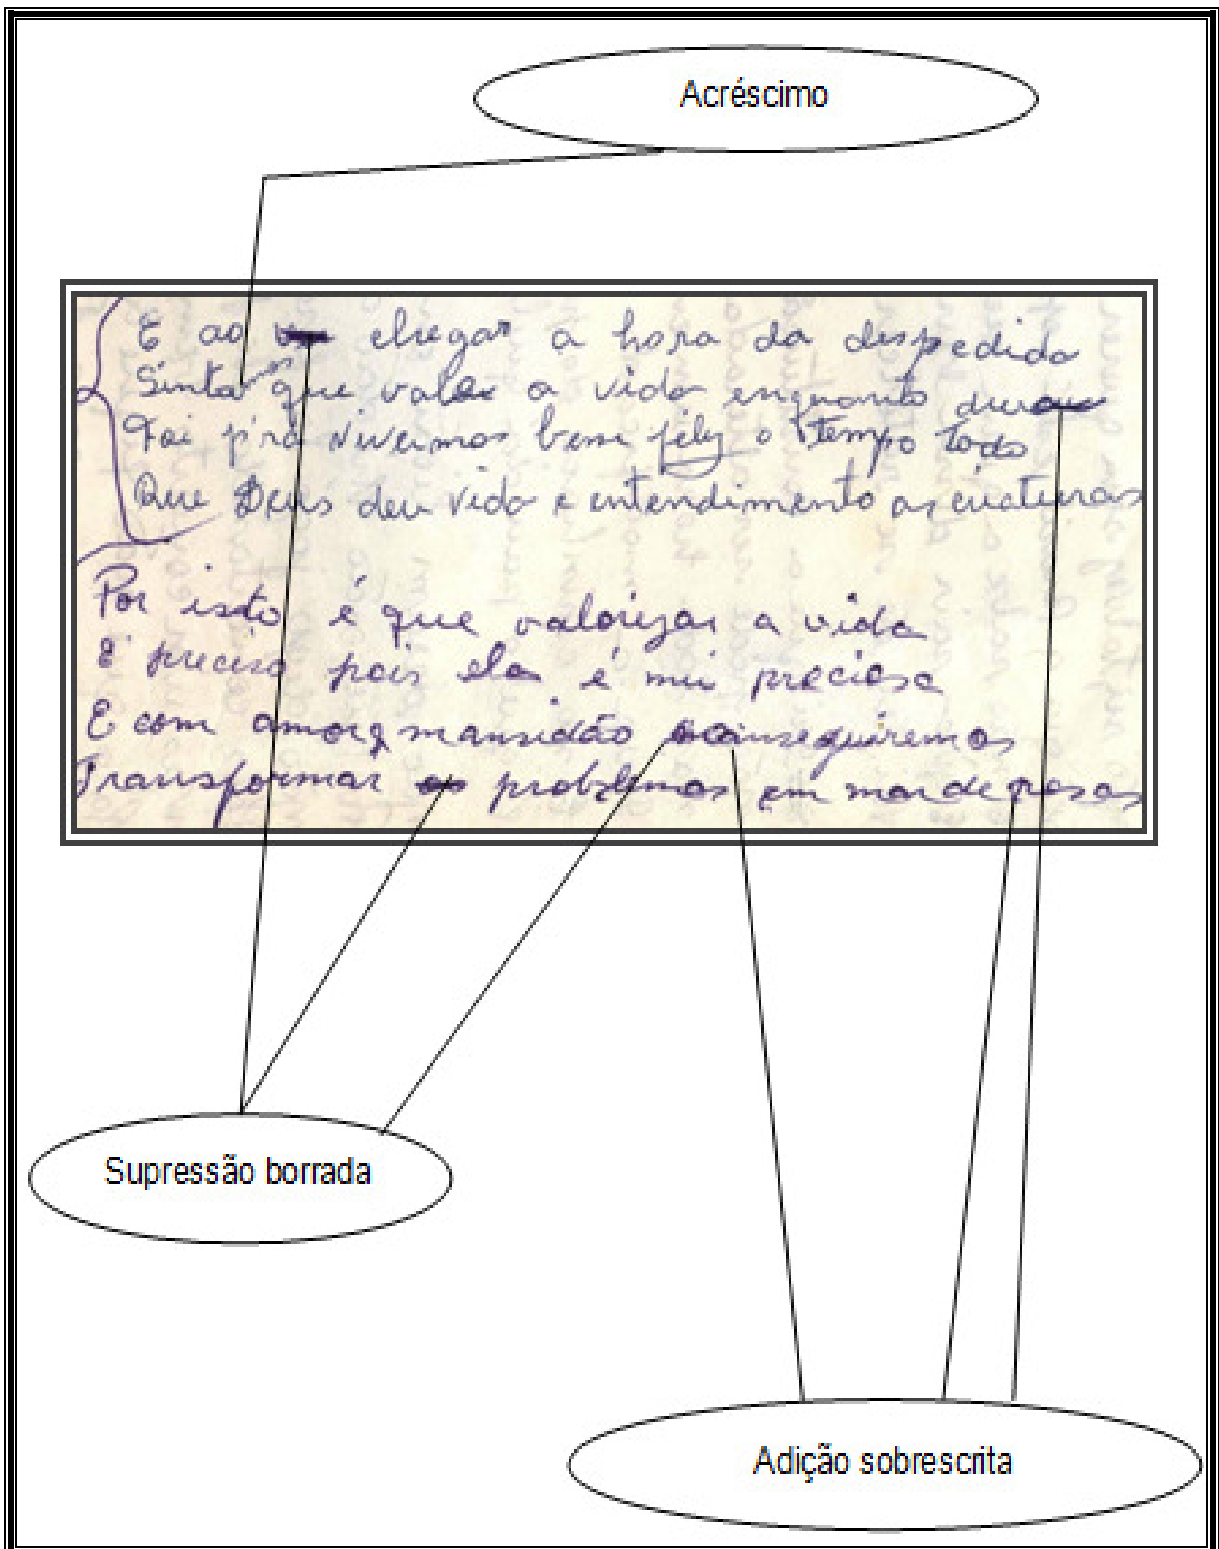 Acréscimo
E ao chegar a hora da despedida
Sinta que vale a vida enquanto
Foi p'ra vivermos bem feliz o tempo todo
Que Deus deu vida e entendimento as criaturas
Por isto é que valorizar a vida
É preciso pois ela é mui preciosa
E com amor e mansidão conseguiremos
Transformar os problemas em mar de rosas
Supressão borrada
Adição sobrescrita